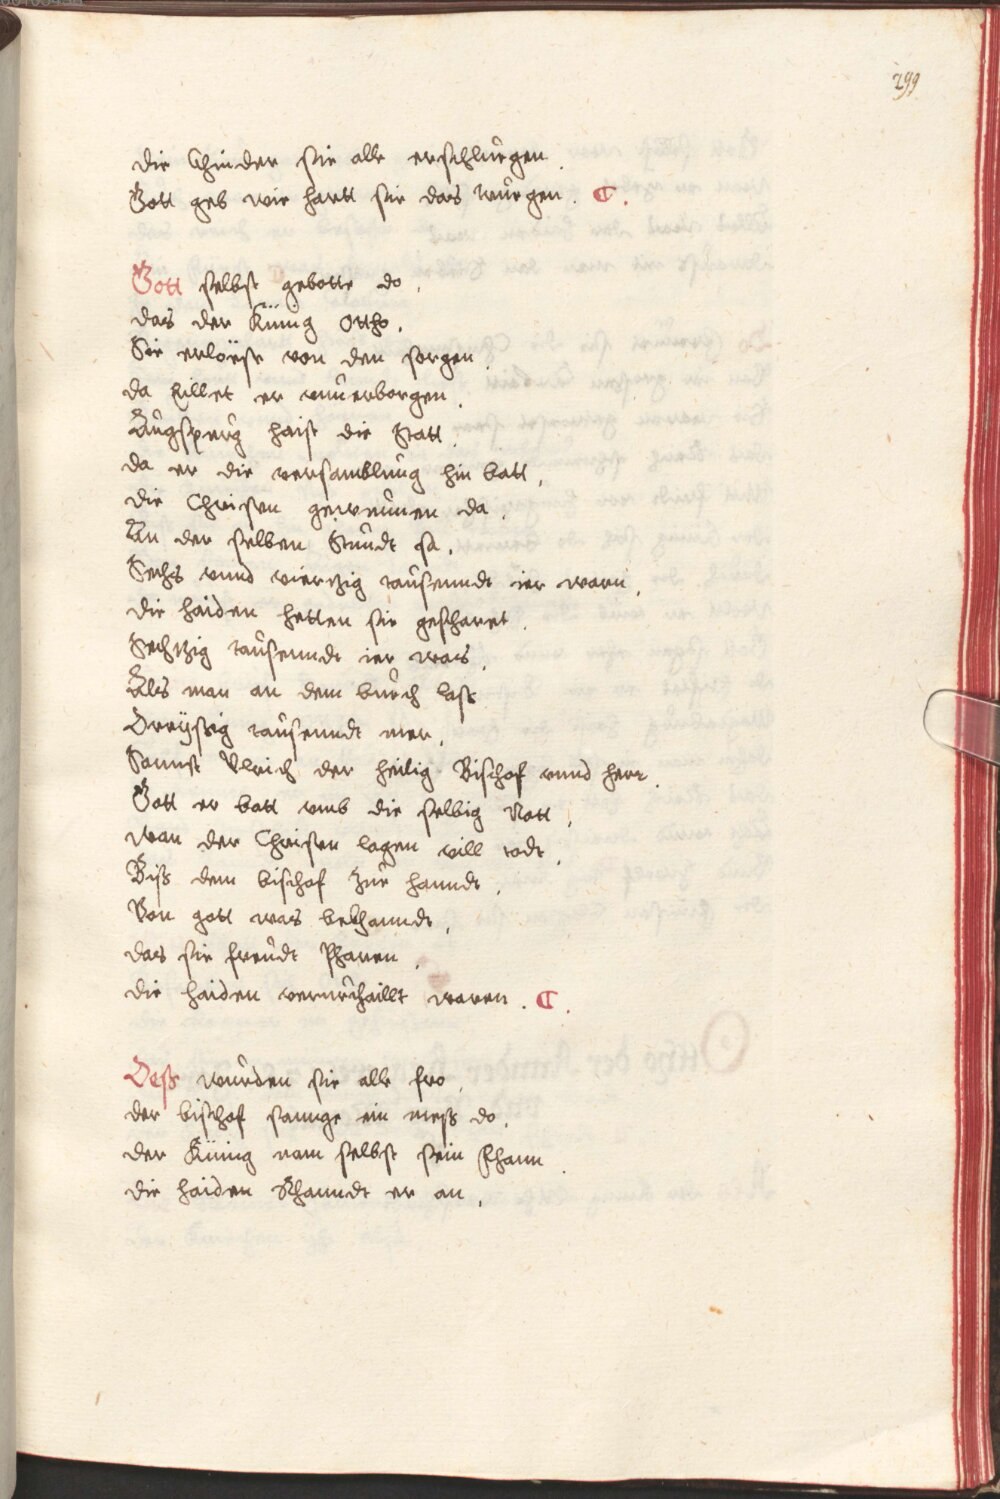 299
die Chinder sie alle erschlůegen.
Gott geb wie hartt sie das wůrgen. C.
Gott selbst gebotte do,
das der Künig Ottho,
Sie erlöese von den sorgen.
da Eillet er vnuerborgen.
Aůgspurg haist die Statt.
da er die versamblůng hin batt,
die Christen gewunnen da,
An der selben Stůndt sa,
Sechs vnnd viertzig taůsenndt ier warn,
die haiden hetten sie gescharet.
Sechtzig taůsenndt ier was,
Als man an dem bůech lass
Dreÿssig taůsenndt mer,
Sannst Vlrich der heilig Bischof vnnd herr.
Gott er batt vmb die selbig Nott,
wan der Christen lagen vill todt,
Biss dem bischof zůr hanndt,
Von gott was bekhanndt,
das sie freůdt Pharen,
die haiden verurthaillt waren. C.
Dess wůrden sie alle fro,
der bischof sannge ein mess do,
der Künig nam selbst sein Fhann.
die haiden Rhanndt er an,